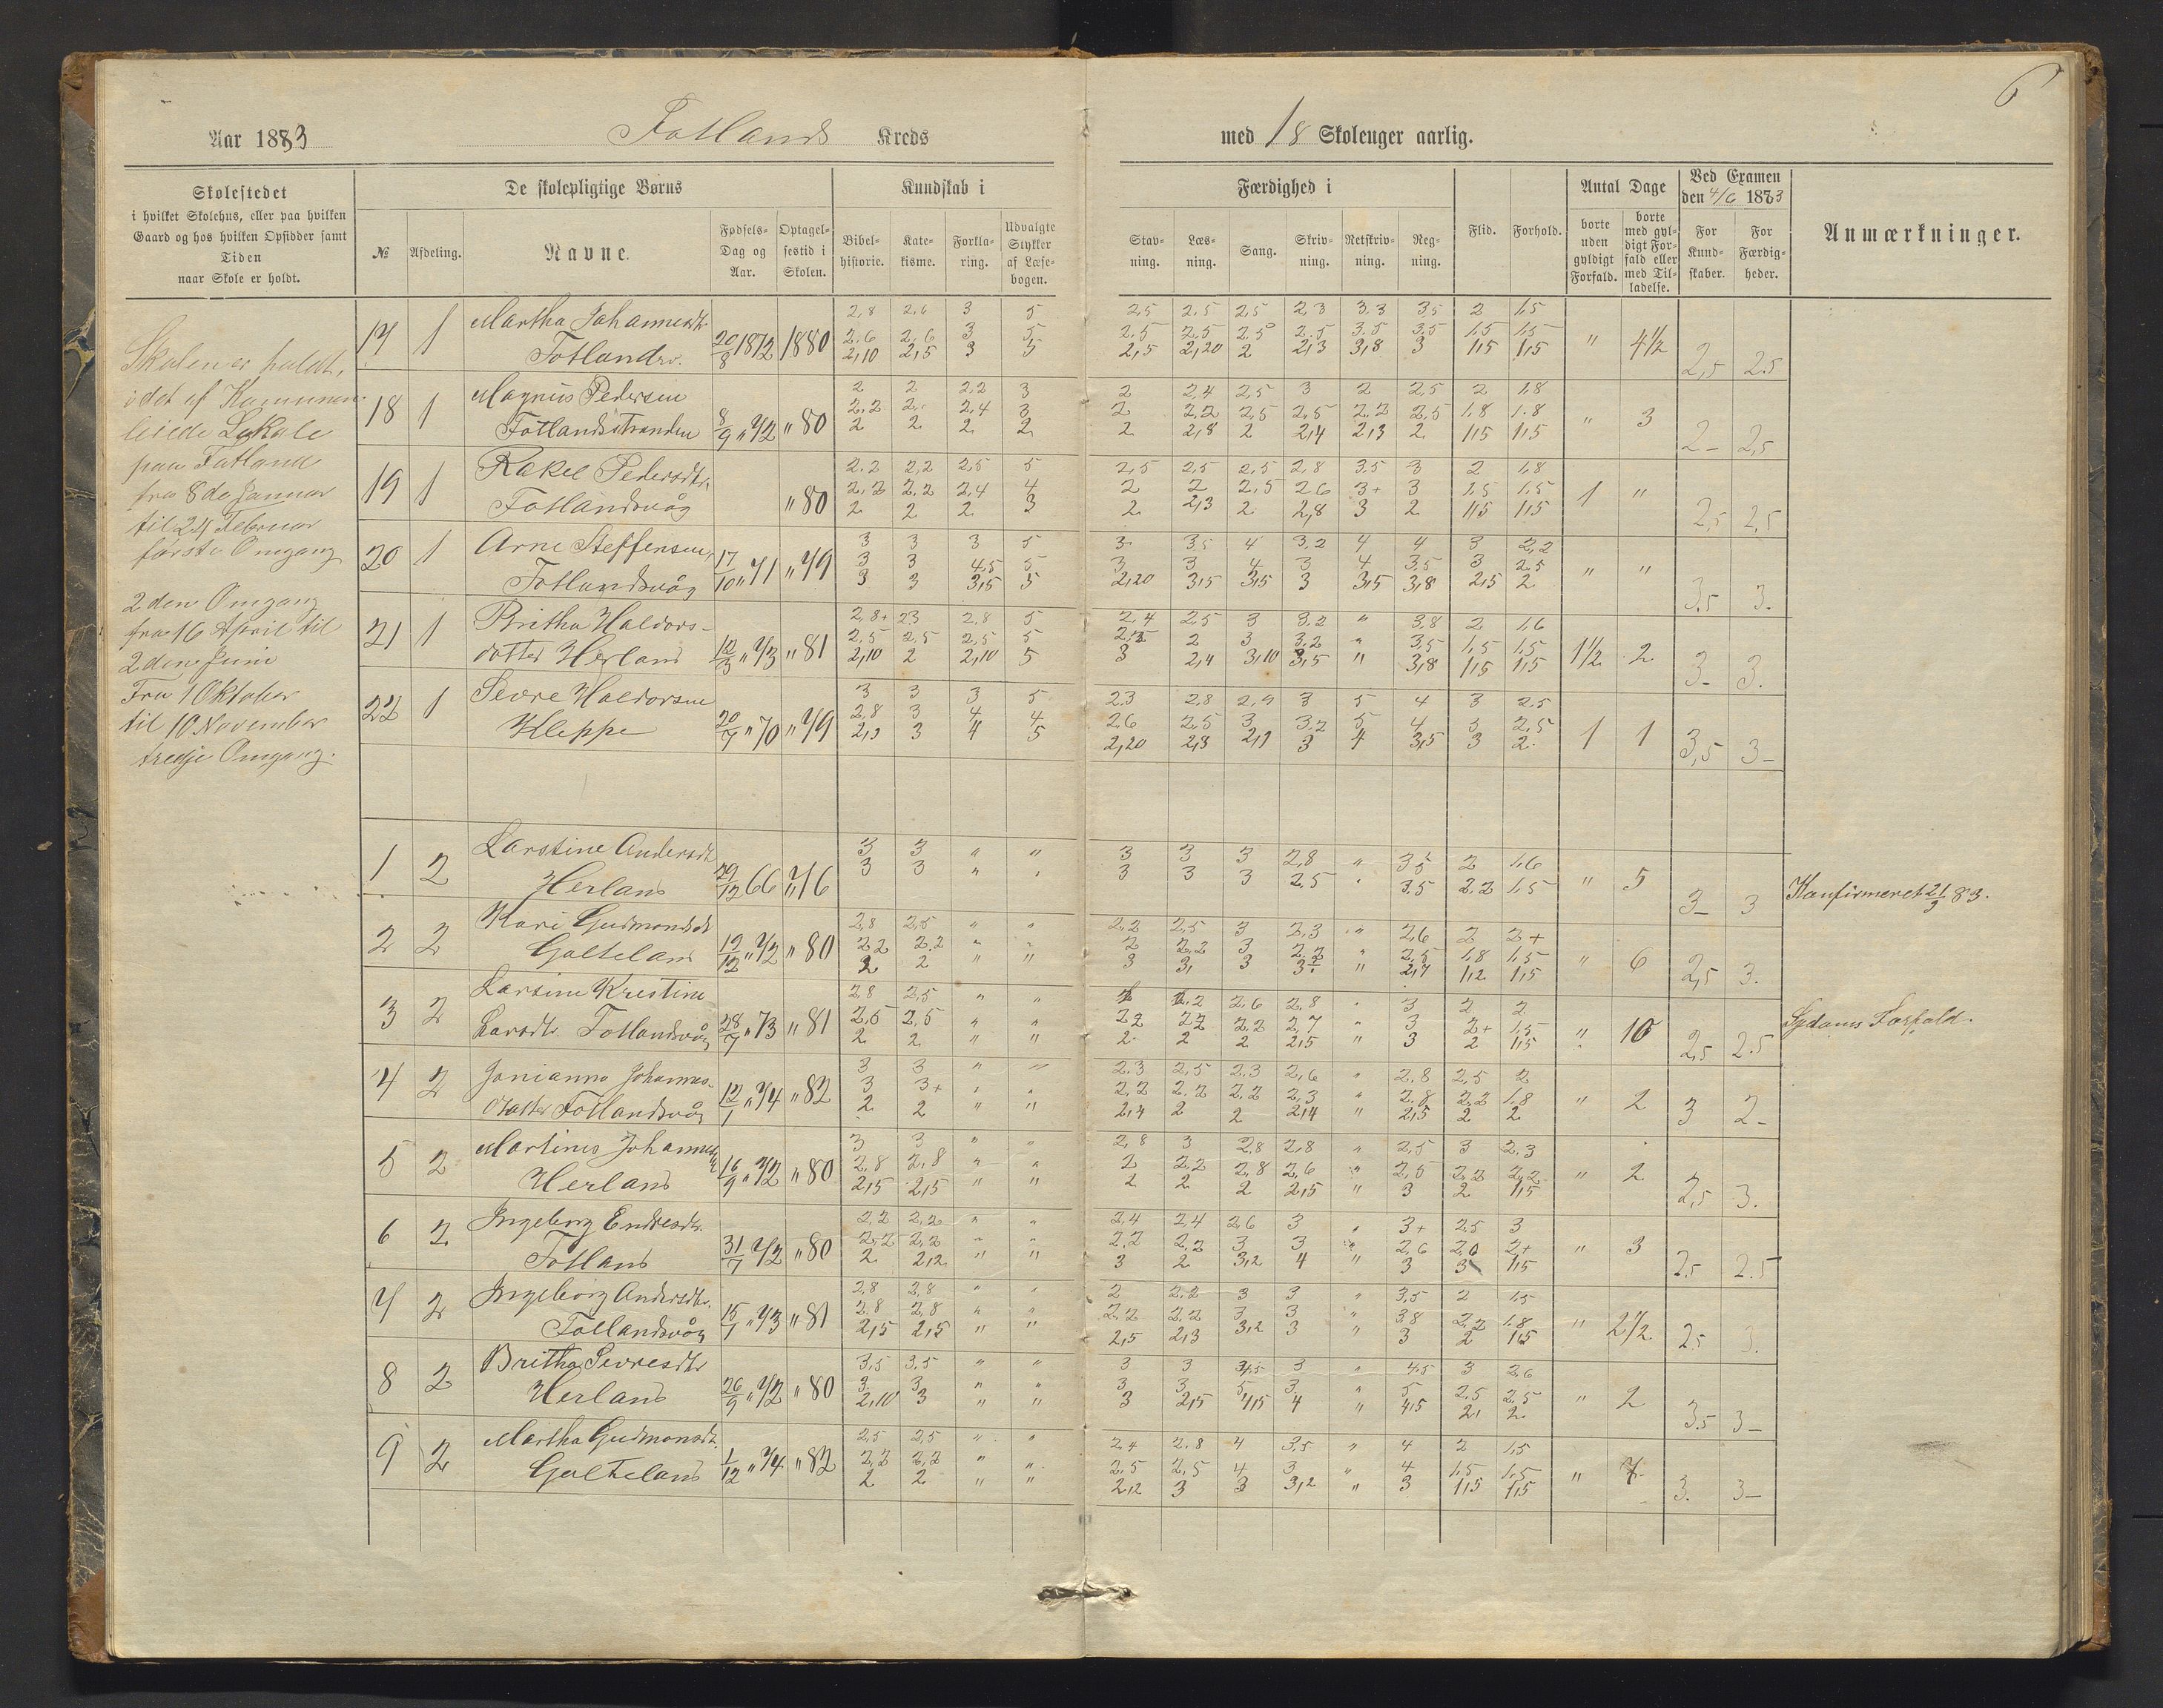 6
Aar 1883 Totlands Kreds med 18 Skoleuger aarlig.
Skolestedet
i hvilket Skolehus, eller paa hvilken
Gaard og hos hvilken Opsidder samt
Tiden
naar Skole er holdt.
De skolepligtige Børns
№ Afdeling. Navne. Fødsels-Dag og Aar. Optagelsestid i Skolen.
Kundskab i
Bibelhistorie. Katekisme. Forklaring. Udvalgte Stykker af Læsebogen.
Færdighed i
Stavning. Læsning. Sang. Skrivning. Retskrivning. Regning.
Flid. Forhold.
Antal Dage
borte uden gyldigt Forfald. borte med gyldigt Forfald eller med Tilladelse.
Ved Examen
den 4/6 1883
For Kundskaber. For Færdigheder.
Anmærkninger.
Skolen er holdt,
i det af Kommunen
leiede Lokale
paa Totland
fra 8de Januar
til 24 Februar
første Omgang
2den Omgang
fra 16 April til
2den Juni
Fra 1 Oktober
til 10 November
tredje Omgang.
2,8 2,6 3 5 2,5 2,5 2,5 2,3 3.3 3,5 2 1,5
17 1 Martha Johannesdtr. Totlandsv. 20/8 1872 1880 2,6 2,6 3 5 2,5 2,5 2,5 2,5 3.5 3,5 1,5 1,5 " 4 1/2 2,5 2.5
2,10 2,5 3 5 2,5 2,20 2 2,3 3,8 3 1,5 1,5
2 2 2,2 3 2 2,4 2,5 3 2 2,5 2 1,8
18 1 Magnus Pedersen Totlandsstranden 8/9 " 72 " 80 2,2 2. 2,4 3 2 2,2 2,5 2,5 2,2 2,5 1,8 1.8 " 3 2- 2,5
2 2 2 2 2 2,8 2 2,4 2,3 2 1,5 1,5
2.2 2,2 2,5 5 2,5 2,5 2,5 2,8 3.5 3 2 1,8
19 1 Rakel Pedersdtr. Totlandsvåg " 80 2,2 2,2 2,4 4 2 2 2,5 2,6 3+ 3 1,5 1,5 1 " 2,5 2,5
2 2 2 3 2 2,3 2 2,8 3 2 1,5 1,5
3 3 3 5 3 3,5 4 3.2 4 4 3 2,2
20 1 Arne Steffensen, Totlandsvåg 17/10 " 71 " 79 3 3 4,5 5 3 3 4 3 4 3,5 3 2,5 " " 3.5 3.
3 3 3,5 5 2,20 3,5 3,5 3 3,5 3,8 2,5 2
2,8+ 2,3 2,8 5 2,4 2,5 3 3.2 " 3,8 2 1,6
21 1 Britha Haldorsdotter Herland 12/3 " 73 " 81 2,5 2,5 2,5 5 2,5 2 3 3,2 " 3,5 1,5 1,5 1 1/2 2 3- 3.
2,10 2 2,10 5 3 2,4 3,10 3,5 " 3,8 1,5 1,5
3 3 3 5 2,3 2,8 2,9 3 5 4 3 2,5
22 1 Sevre Haldorsen Kleppe 20/7 " 70 " 79 2,8 3 4 4 2,6 2,5 3 3.2 5 4 3 2,5 1 1 3,5 3-
2,3 3 4 5 2,20 2,3 2,9 3 4 3,5 3 2
3 3 " " 3 3 3 2,8 " 3,5 2 1,6
1 2 Larstine Andersdtr. Herland 29/12 66 " 76 3 3 " " 3 3 3 2,5 " 3.5 2.2 1,5 " 5 3- 3 Konfirmeret 21/3 83.
2,8 2,5 " " 2,2 2,5 3 2,3 " 2,6 2 2+
2 2 Kari Gudmondsdt Galteland 19/12 " 72 " 80 2,2 2.2 " " 2 2,2 3 2,2 " 2,5 1,8 1,5 " 6 2,5 3.
2 2 " " 3 3, 3 3 " 2,7 1,2 1,5
2,8 2,5 " " 2 2,2 2,6 2,8 " 3 2 2
3 2 Larsine Kristine Larsdtr. Totlandsvåg 28/7 " 73 " 81 2,5 2,5 " " 2,2 2,2 2,2 2,7 " 3 2+ 1,5 " 10 2,5 2.5 Sydoms Forfald.
2 2 " " 2 2 2 2,5 " 3 2 1,5
3 3 " " 2.3 2,5 2.3 2,6 " 2.8 2,5 2
4 2 Janianna Johannesdatter Totlandsvåg 12/1 " 74 " 82 3 3+ " " 2,2 2,2 2,2 2,3 " 2,8 2,2 1,8 " 2 3 2-
2 2 " " 2,4 2 2 2,4 " 2,5 2 2
3 3 " " 2,8 3 2,8 2,8 " 2,5 3 2.3
5 2 Martines Johannessen Herland 16/9 " 72 " 80 2,8 2,8 " " 2 2,2 2,8 2,6 " 2,5 2,2 2,2 " 2 2,5 3.
2,5 2,5 " " 2 2 2 2,5 " 3 2 1,5
2,2 2,2 " " 2,4 2,4 2,6 3 " 3+ 2,5 3
6 2 Ingeborg Endresdtr. Totland 31/7 72 " 80 2,2 2,2 " " 2,2 2,2 3 3 " 2,6 2,0 2+ " 3 2.5 2.5
2 2,2 " " 3 2 3,2 4 " 3 3 1,5
2,8 2,8 " " 2 2,2 3 3 " 3,5 2 1,5
7 2 Ingeborg Andersdtr. Totlandsvåg 15/1 " 73 " 81 2,8 2,8 " " 2,2 2,2 3 3 " 3,8 2,2 1,8 " 2 1/2 2.5 3.
2,5 2,5 " " 2,5 2,3 3,2 3 " 3 2 1,5
3,5 3,5 " " 3 3 3,5 3 " 4,5 3 2,6
8 2 Britha Sevresdtr Herland 26/9 " 72 " 80 3. 3 " " 3 3 5 3 " 5 2,5 2,5 " 2 3.5 3-
2,10 3 " " 3 2,5 4,5 4 " 4,5 2, 2
2,5 2,5 " " 2,4 2.8 4 3,5 " 4 2 1,5
9 2 Martha Gudmonsdt. Galteland 1/12 " 74 " 82 2,2 2,2 " " 2,5 2,5 4 3 " 4 1,5 1,5 " 7 3. 3-
2 2 " " 2,2 3 3 3,2 " 3 1,5 1,5